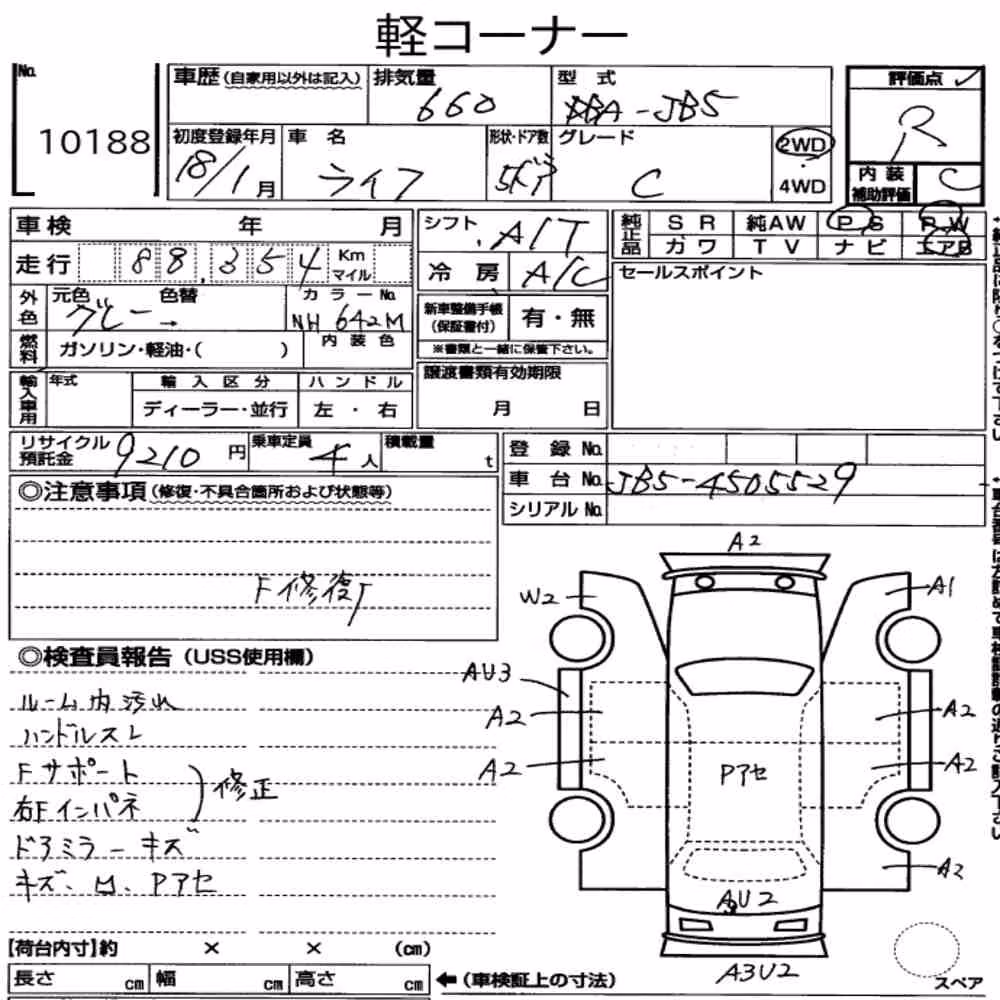 軽コーナー
No.
10188
車歴(自家用以外は記入)
排気量
660
型式
DBA-JB5
評価点
R
初度登録年月
18/1月
車名
ライフ
形状・ドア数
5ドア
グレード
C
2WD
4WD
内装
補助評価
C
車検 年 月
走行 88,354 Km マイル
外色 元色 グレー → 色替
カラーNo. NH 642M
燃料 ガソリン・軽油・( )
内装色
シフト A/T
冷房 A/C
新車整備手帳
(保証書付)
有・無
※書類と一緒に保管下さい。
純正品 SR 純AW PS PW
ガワ TV ナビ エアB
セールスポイント
輸入車用 年式
輸入区分
ディーラー・並行
ハンドル
左・右
譲渡書類有効期限
月 日
リサイクル
預託金
9210円
乗車定員 4人
積載量 t
登録No.
車台No. JB5-4505529
シリアルNo.
◎注意事項(修復・不具合箇所および状態等)
F修復
◎検査員報告(USS使用欄)
ルーム内汚れ
ハンドルスレ
Fサポート
右Fインパネ
修正
ドアミラーキズ
キズ、凹、Pアセ
A2
W2
A1
AU3
A2
A2
A2
A2
Pアセ
A2
AU2
A3U2
スペア
【荷台内寸】約 × × (cm)
長さ cm 幅 cm 高さ cm
←(車検証上の寸法)